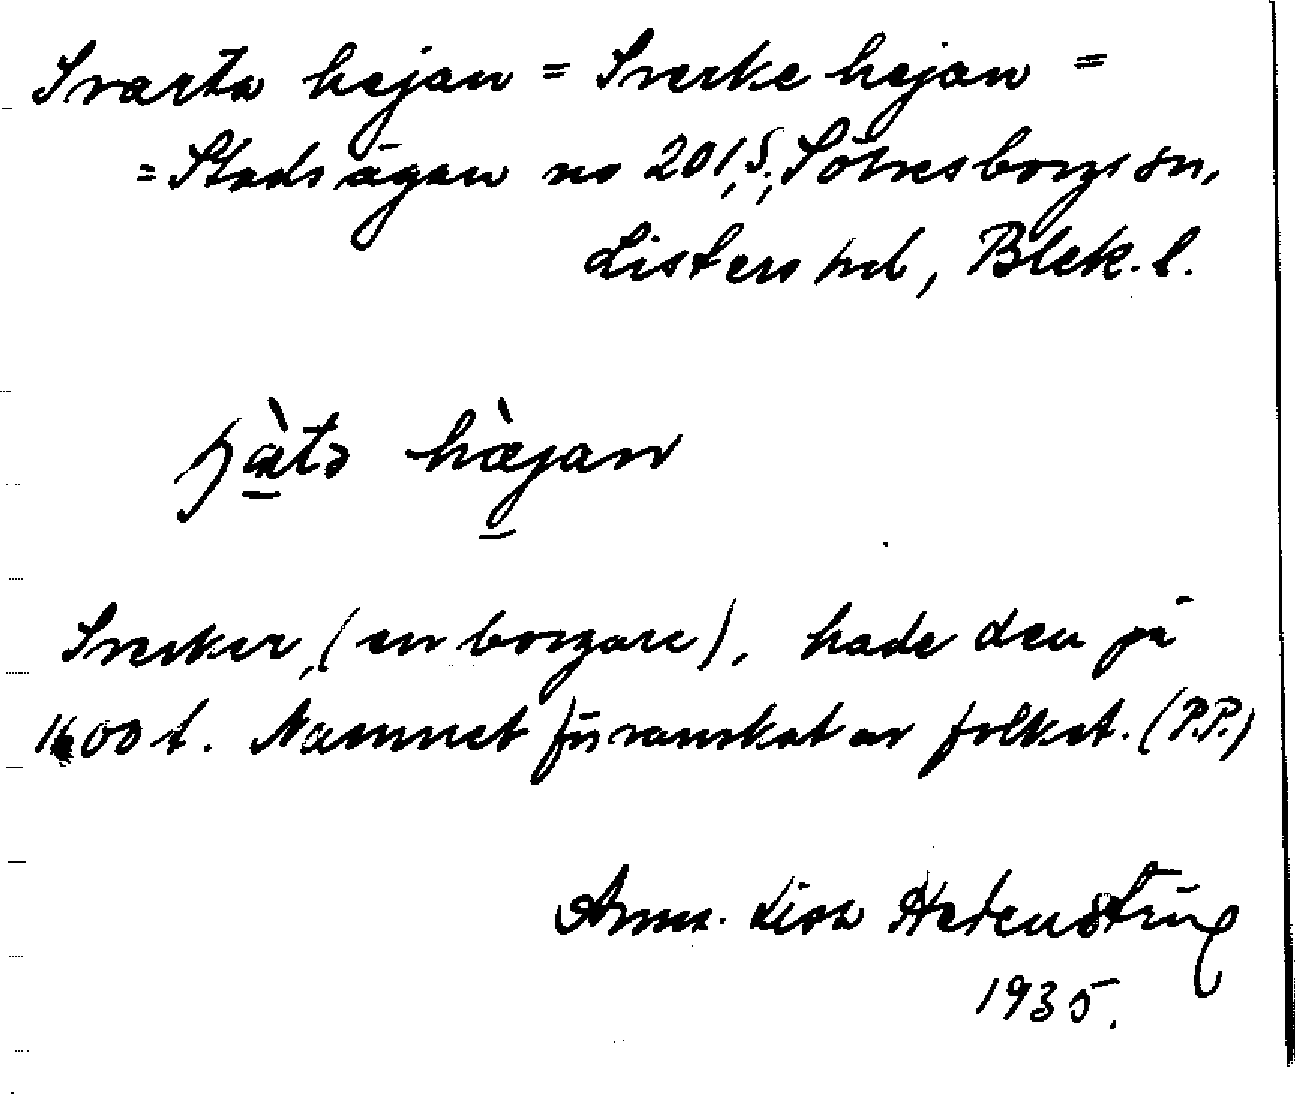 Svarta hejan = Sverke hejan =
= Stadsägan no 201, S; Sölvesborgs sn,
Listers hd, Blek. l.
hàjan
Sverker, (en borgare), hade den på
1600 t. Namnet förvanskat av folket. (P.P.)
Anna-Lisa Hedenstrüg
1935.